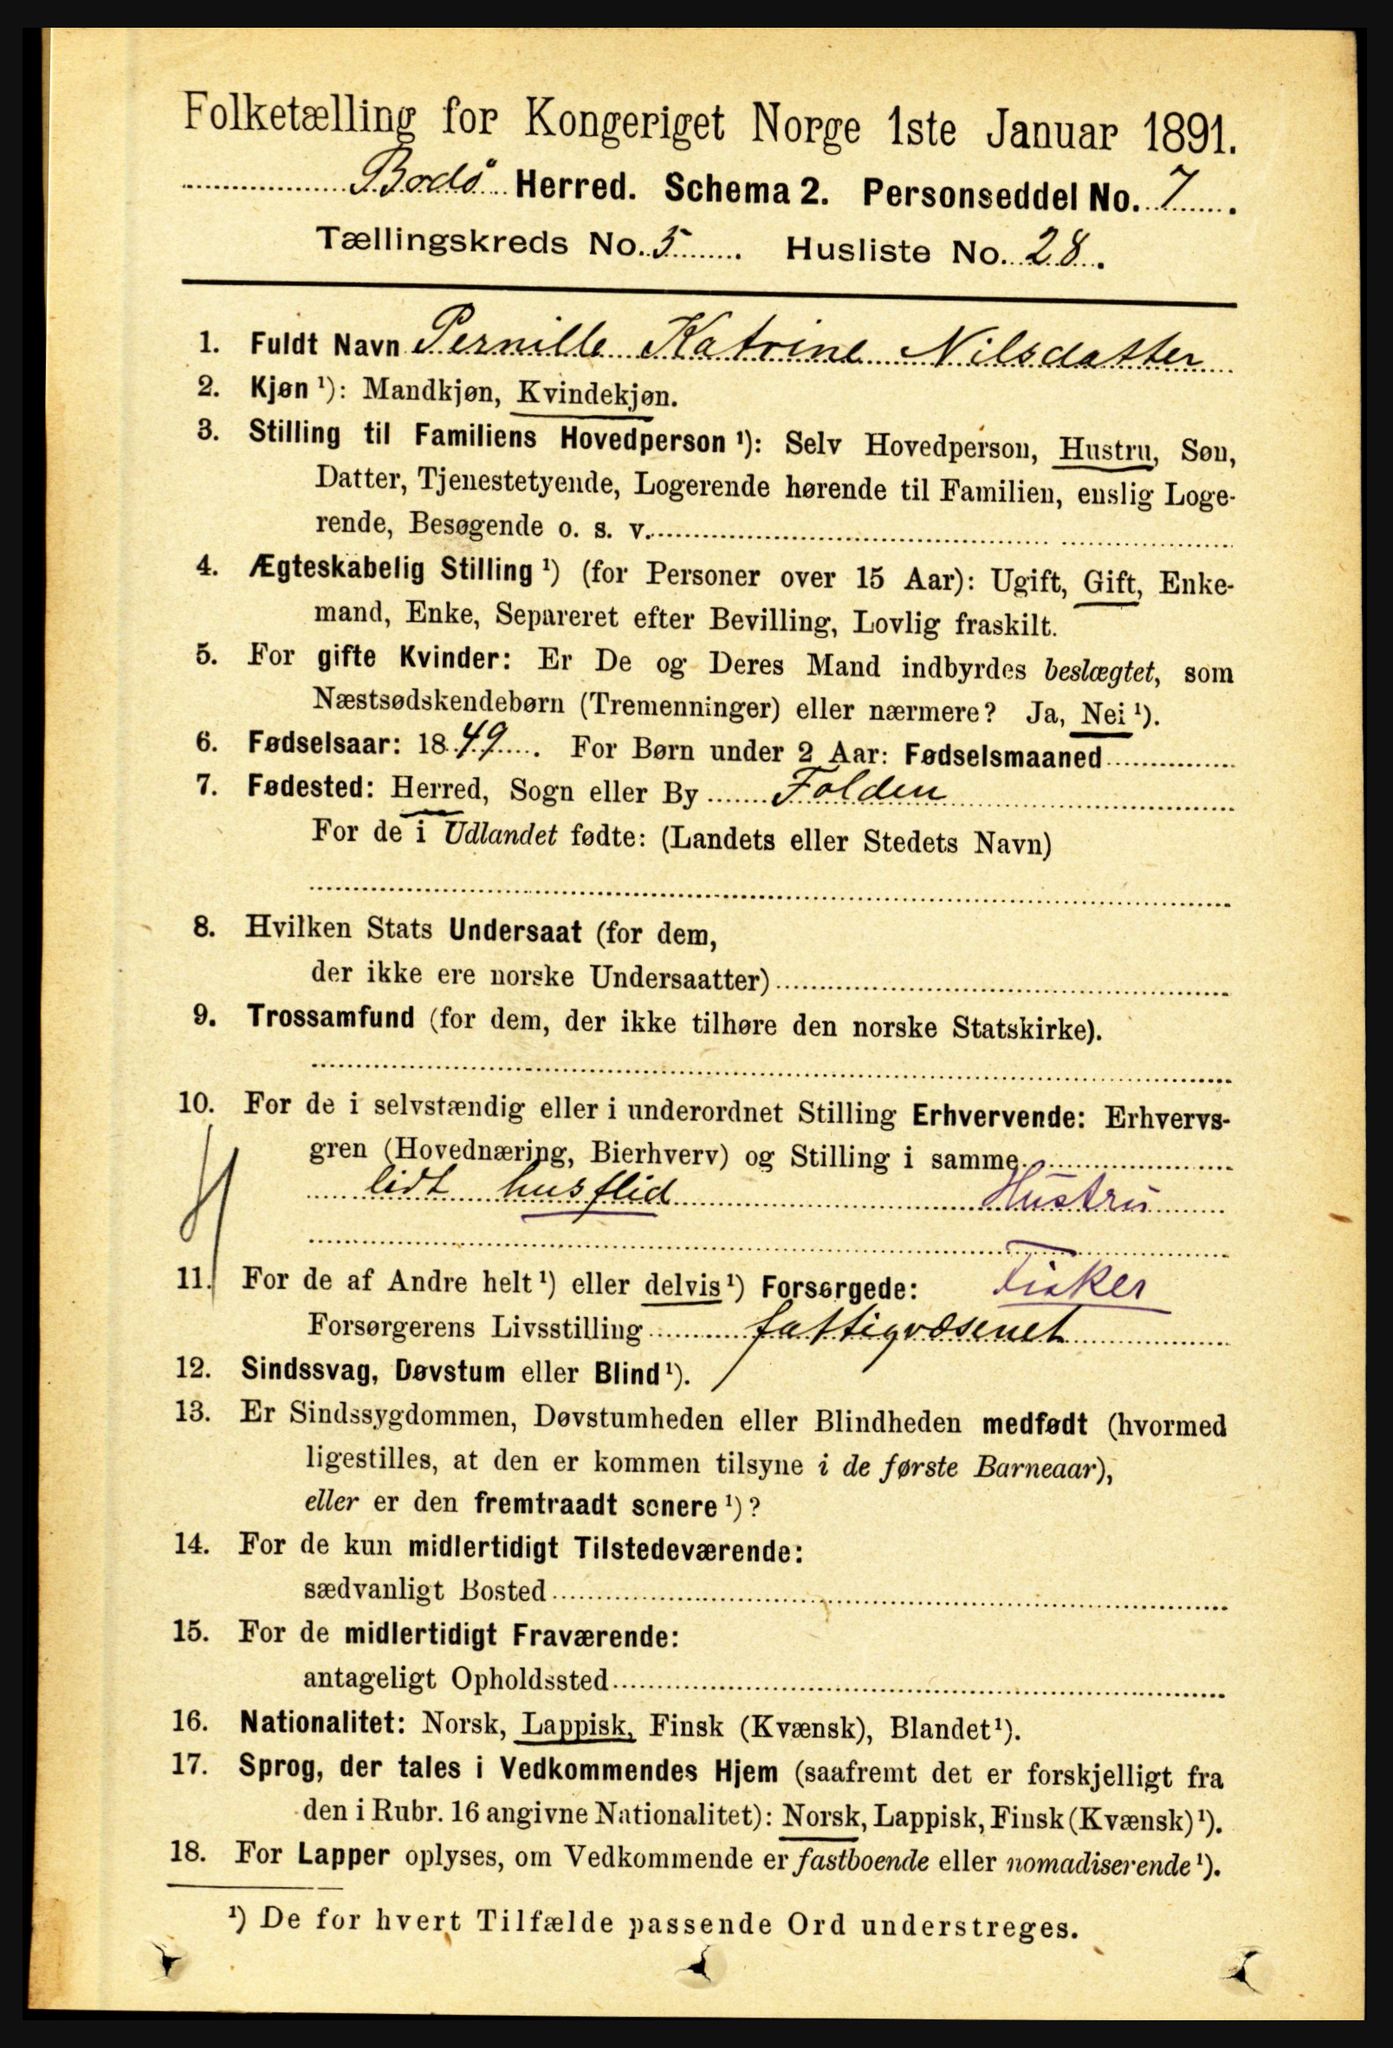 Folketælling for Kongeriget Norge 1ste Januar 1891.
Bodø Herred. Schema 2. Personseddel No. 7.
Tællingskreds No. 5. Husliste No. 28.
1. Fuldt Navn Pernille Katrine Nilsdatter
2. Kjøn ¹): Mandkjøn, Kvindekjøn.
3. Stilling til Familiens Hovedperson ¹): Selv Hovedperson, Hustru, Søn,
Datter, Tjenestetyende, Logerende hørende til Familien, enslig Loge-
rende, Besøgende o. s. v.
4. Ægteskabelig Stilling ¹) (for Personer over 15 Aar): Ugift, Gift, Enke-
mand, Enke, Separeret efter Bevilling, Lovlig fraskilt.
5. For gifte Kvinder: Er De og Deres Mand indbyrdes beslægtet, som
Næstsødskendebørn (Tremenninger) eller nærmere? Ja, Nei ¹).
6. Fødselsaar: 1849. For Børn under 2 Aar: Fødselsmaaned
7. Fødested: Herred, Sogn eller By Folden
For de i Udlandet fødte: (Landets eller Stedets Navn)
8. Hvilken Stats Undersaat (for dem,
der ikke ere norske Undersaatter)
9. Trossamfund (for dem, der ikke tilhøre den norske Statskirke).
10. For de i selvstændig eller i underordnet Stilling Erhvervende: Erhvervs-
gren (Hovednæring, Bierhverv) og Stilling i samme
lidt husflid Hustru
11. For de af Andre helt ¹) eller delvis ¹) Forsørgede: Fisker
Forsørgerens Livsstilling fattigvæsenet
12. Sindssvag, Døvstum eller Blind ¹).
13. Er Sindssygdommen, Døvstumheden eller Blindheden medfødt (hvormed
ligestilles, at den er kommen tilsyne i de første Barneaar),
eller er den fremtraadt senere ¹)?
14. For de kun midlertidigt Tilstedeværende:
sædvanligt Bosted
15. For de midlertidigt Fraværende:
antageligt Opholdssted
16. Nationalitet: Norsk, Lappisk, Finsk (Kvænsk), Blandet ¹).
17. Sprog, der tales i Vedkommendes Hjem (saafremt det er forskjelligt fra
den i Rubr. 16 angivne Nationalitet): Norsk, Lappisk, Finsk (Kvænsk) ¹).
18. For Lapper oplyses, om Vedkommende er fastboende eller nomadiserende ¹).
¹) De for hvert Tilfælde passende Ord understreges.